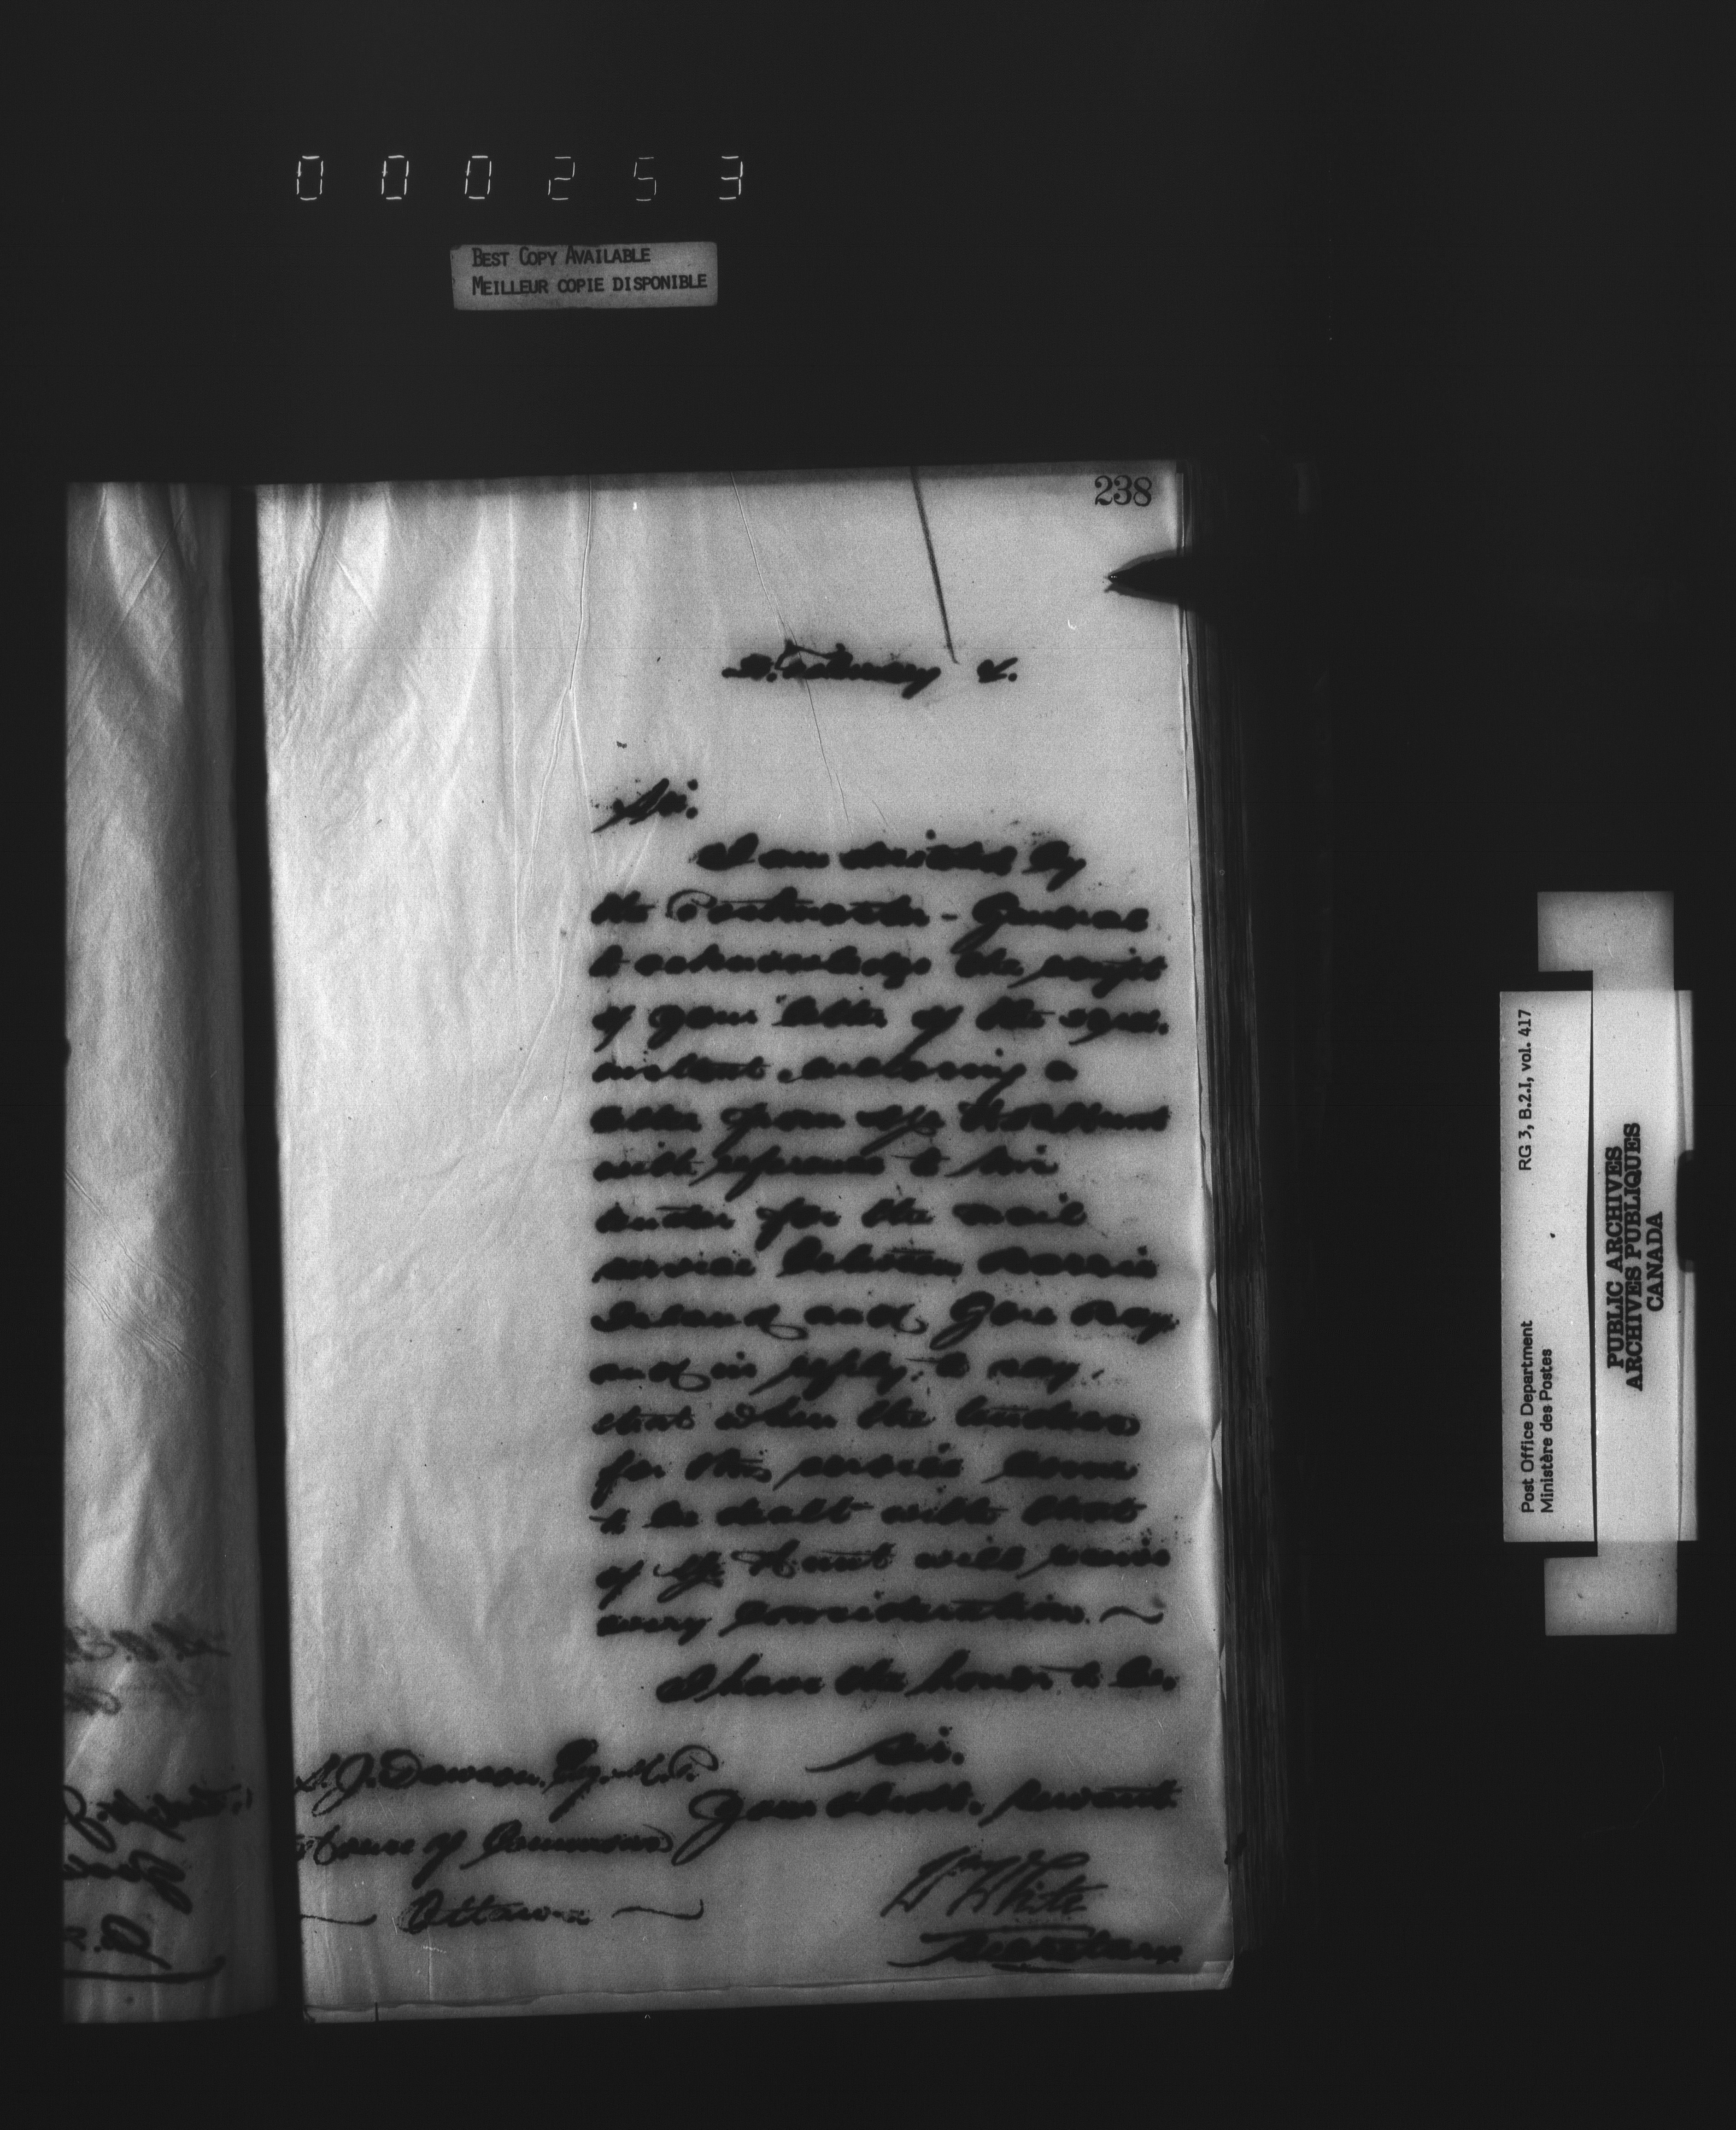 000253
BEST COPY AVAILABLE
MEILLEUR COPIE DISPONIBLE
238
February
Sir:
I am directed by
the Postmaster-General
to acknowledge the receipt
of your letter of the
instant enclosing a
letter from
with reference to his
tender for the mail
service between
Island and Gore Bay
and in reply, to say,
that when the tenders
for this service come
to be dealt with that
of Mr Hunt will receive
every consideration. ~
I have the honor to be.
Sir.
Your obedt. servant.
Wm White
Secretary
S. J. Dawson, Esq. M.P.
House of Commons
Ottawa
RG 3, B.2.I, vol. 417
Post Office Department
Ministère des Postes
PUBLIC ARCHIVES
ARCHIVES PUBLIQUES
CANADA